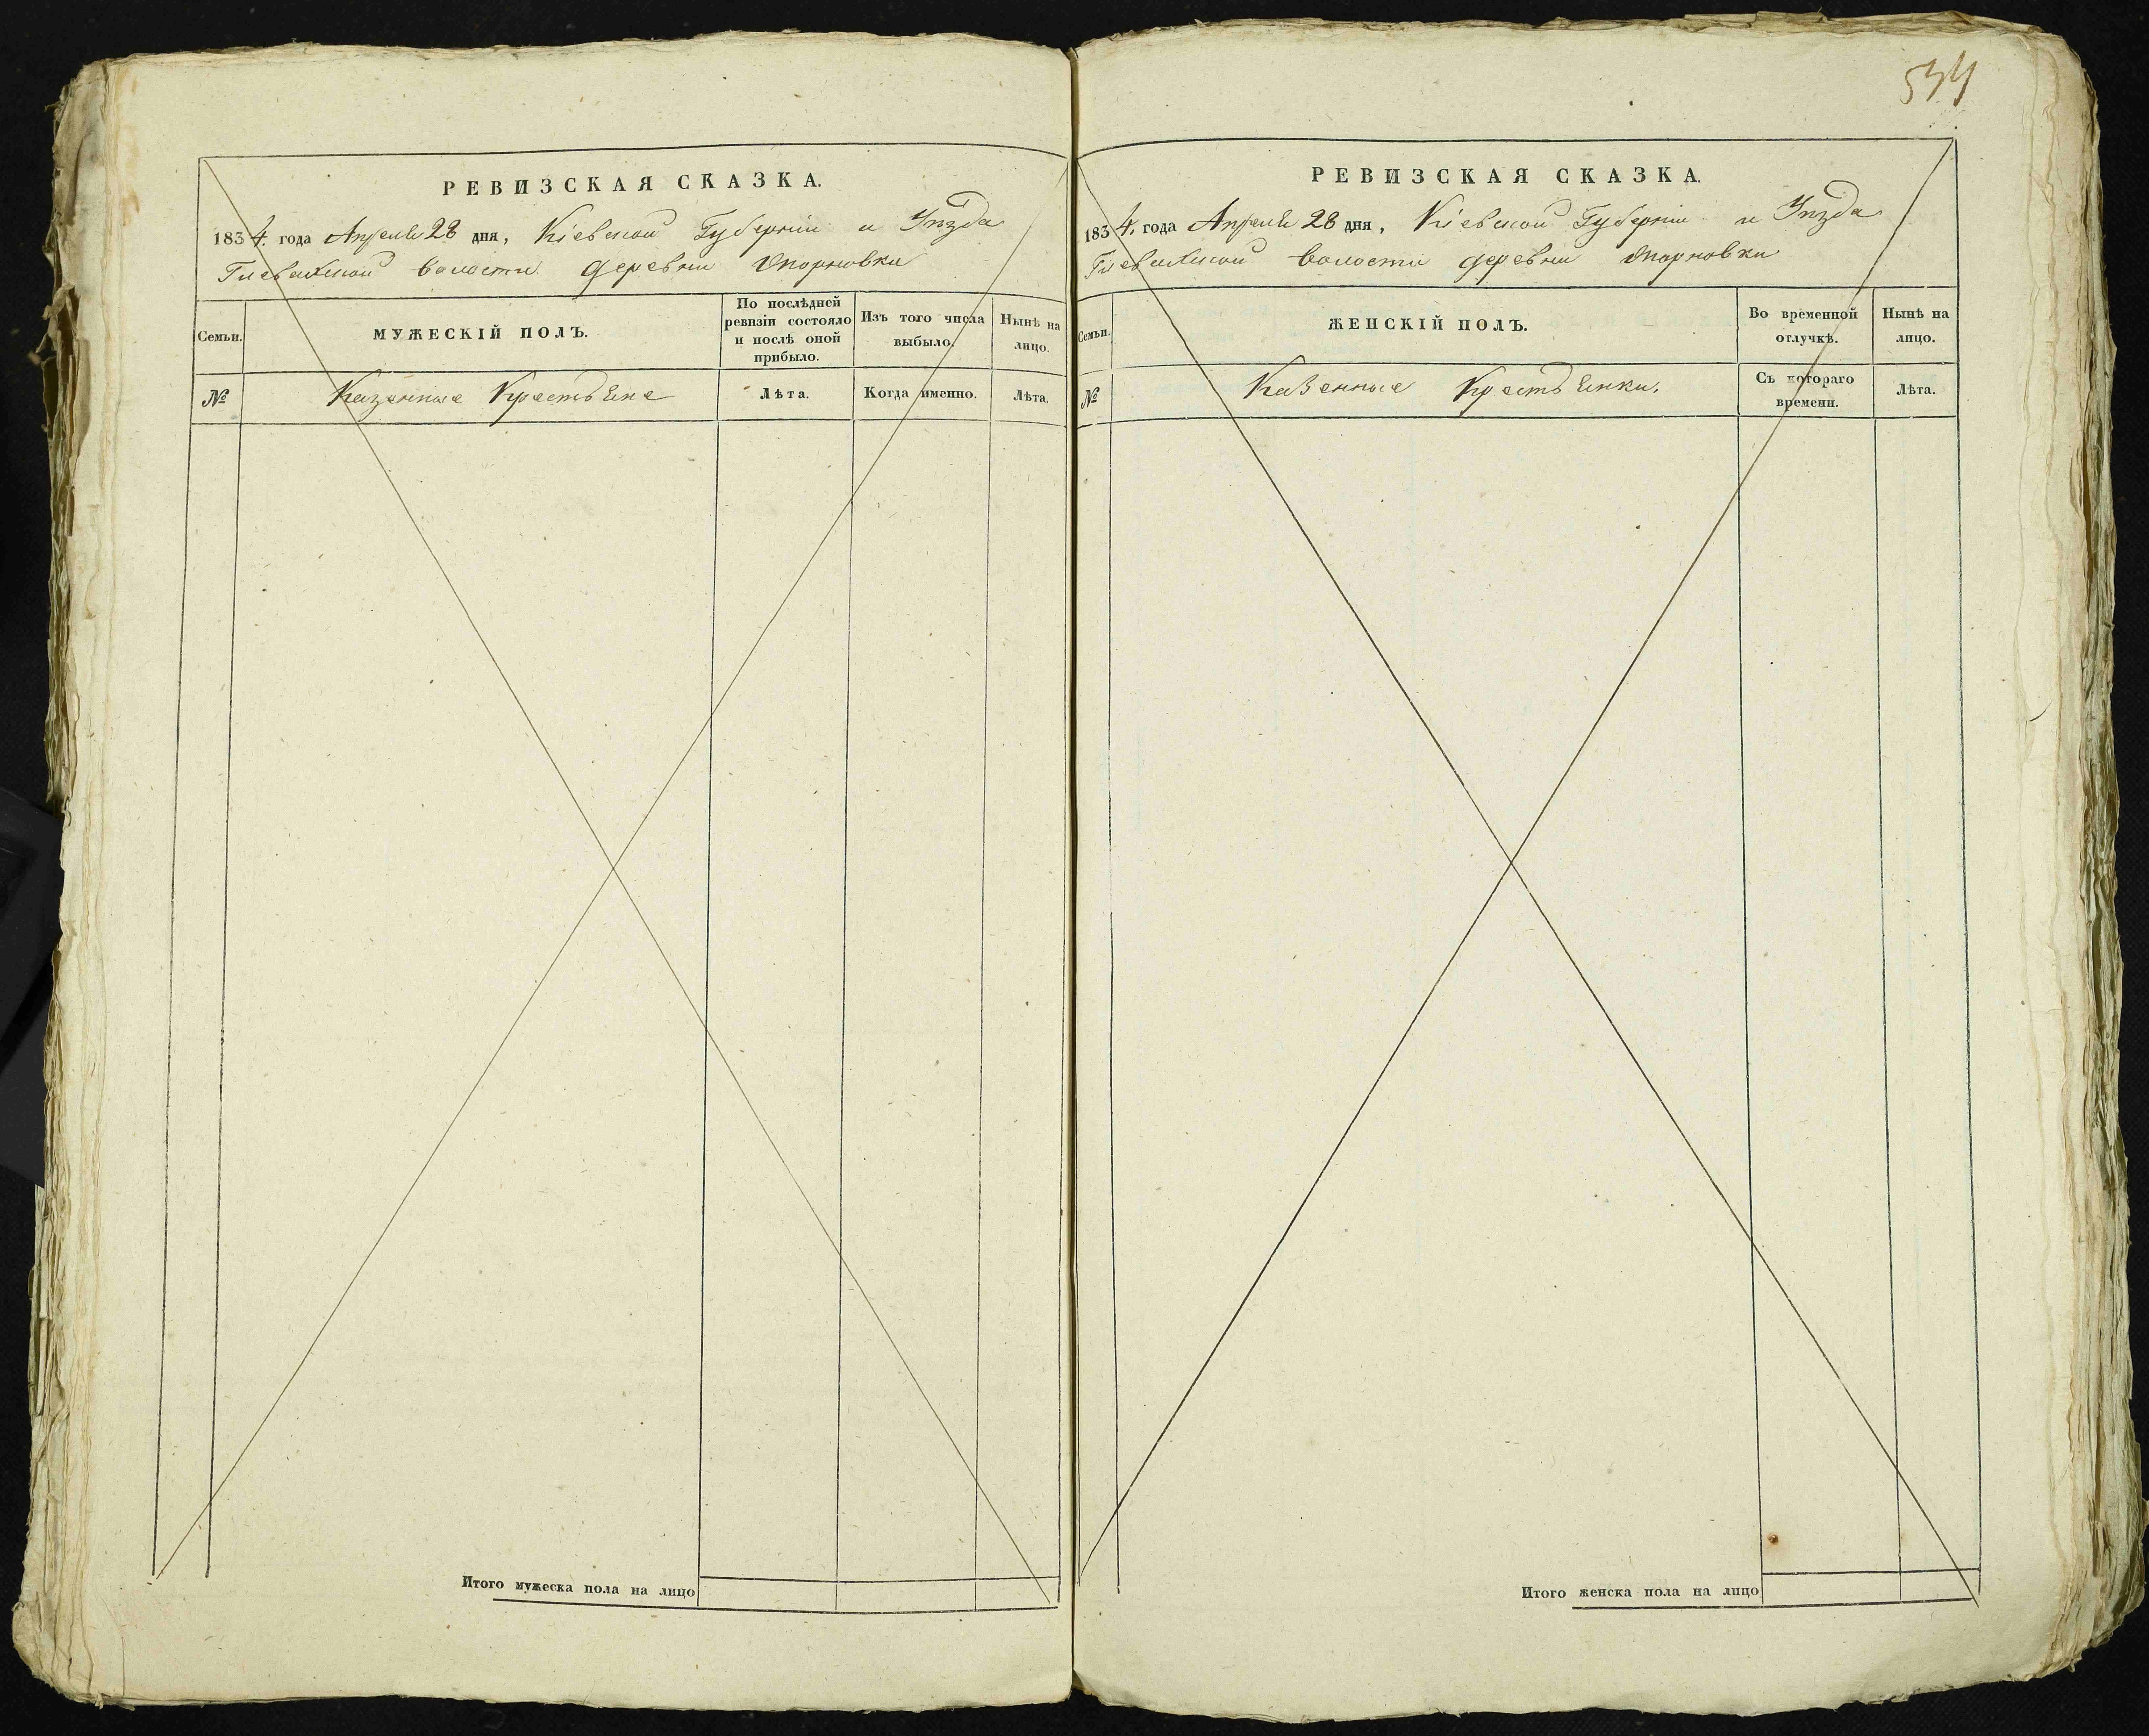 РЕВИЗСКАЯ СКАЗКА.
1834. года Апреля 28 дня, Кіевской Губерніи и Уѣзда
волости деревни
Семьи.
МУЖЕСКІЙ ПОЛЪ.
По послѣдней ревизіи состояло и послѣ оной прибыло.
Изъ того числа выбыло.
Нынѣ на лицо.
№
Казенные Крестьяне
Лѣта.
Когда именно.
Лѣта.
Итого мужеска пола на лицо
534
РЕВИЗСКАЯ СКАЗКА.
1834. года Апреля 28 дня, Кіевской Губерніи и Уѣзда
волости деревни
Семьи.
ЖЕНСКІЙ ПОЛЪ.
Во временной отлучкѣ.
Нынѣ на лицо.
№
Казенные Крестьянки.
Съ котораго времени.
Лѣта.
Итого женска пола на лицо